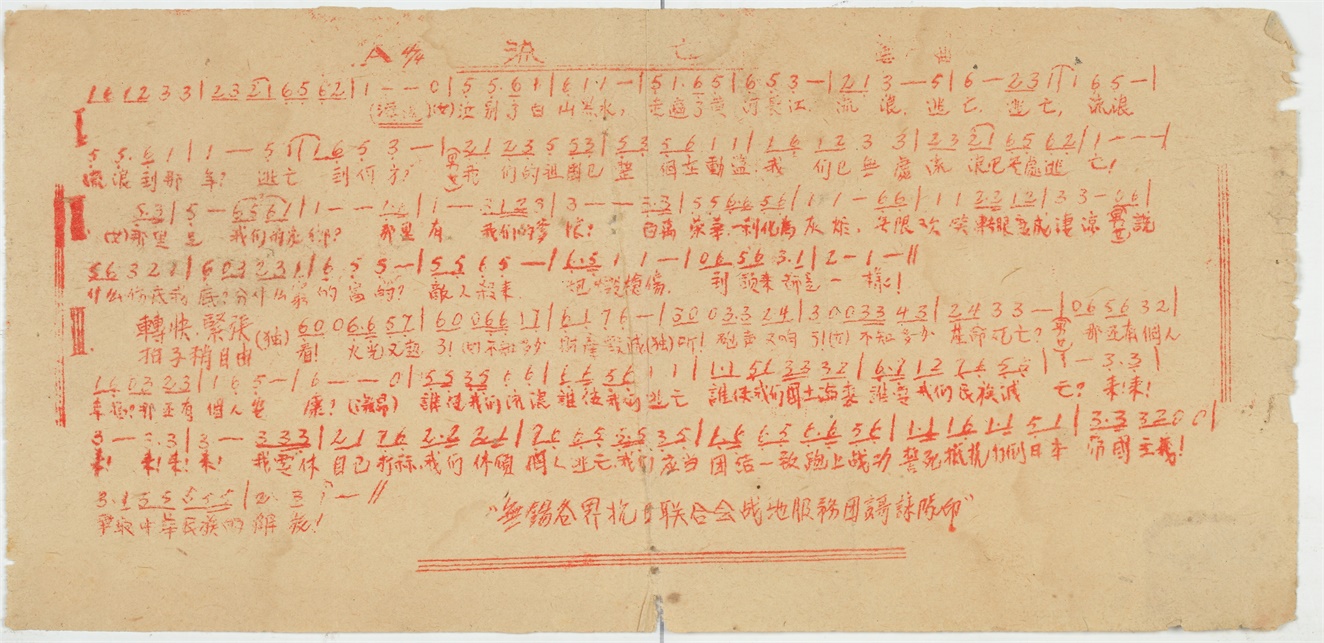 A 4/4 流 亡 曲
1 6 1 2 3 3 | 2 3 2 1 6 5 6 2 | 1 - - 0 | 5 5. 6 1 | 6 1·1 - | 5 1. 6 5 | 6. 5 3 - | 2 1 3 - 5 | 6 - 2 3 1 | 1 6 5 - |
(女)泣别了白山黑水, 走遍了黄河長江. 流浪. 逃亡. 逃亡, 流浪
I
5 5. 6 1 | 1 - 5 1 | 1 6 5 3 - | 2 1 2 3 5 5 3 | 5 3 5 6 1 1 | 1 6 1 2 3 3 | 2 3 2 1 6 5 6 2 | 1 - - - |
流浪到那年? 逃亡到何方? 我們的祖國已整個在動盪. 我們已無處流浪已無處逃亡!
II
5. 3 | 5 - 6 5 6 1 | 1 - - 1. 1 | 1 - 3 1 2 3 | 3 - - 3. 3 | 5 5 6. 6 5 6 | 1 1 - 6 6 | 1 1 2. 2 1 2 | 3 3 - 6 6 |
(女)那里是我們的家鄉? 那里有我們的爹娘? 百萬榮華一刹化為灰燼, 無限欢笑轉眼變成淒涼 說
5 6 3 2 1 | 6 0 3 2 3 1 | 6 5 5 - | 5 5 6 5 - | 6. 5 1 1 - | 0 6 5 6 3. 1 | 2 - 1 - ||
什么你底我底? 分什么窮的富的? 敵人殺来 炮燬槍傷. 到頭来都是一樣!
III
轉快緊張
拍子稍自由
(独) 6 0 0 6. 6 5 7 | 6 0 0 6 6 1 7 | 6 1 7 6 - | 3 0 0 3. 3 2 4 | 3 0 0 3 3 4 3 | 2 4 3 3 - | 0 6 5 6 3 2 |
看! 火光又起了! 不知多少財產毁滅 (独)听! 砲声又响了! 不知多少生命死亡? 那还有個人
1 6 0 3 2 3 | 1 6 5 - | 6 - - 0 | 5 5 3 5 6 6 | 6 6 5 6 1 1 | 1. 1 5 6 3 3 3 2 | 6. 1 1 2 7 6 5 6 | 1 - 3. 3 |
幸福? 那还有個人安康? 誰使我們流浪誰使我們逃亡 誰使我們國土淪喪 誰要我們民族滅亡? 来!来!
3 - 3. 3 | 3 - 3 3 3 | 2 1 7 6 2. 2 2 1 | 7 6 6 5 5. 5 3 5 | 6. 6 6 5 6. 6 5 6 | 1. 1 1 6 1. 1 5 1 | 3. 3 3 2 0 0 |
来! 来!来! 来! 我要休自己打祘, 我們休顧個人逃亡, 我們应当團結一致跑上战场 誓死抵抗打倒日本帝國主義!
3. 1 3 5 5 5 5 | 2. 3 1 - ||
爭取中華民族的解放!
“無錫各界抗日联合会战地服務團謌詠隊印”